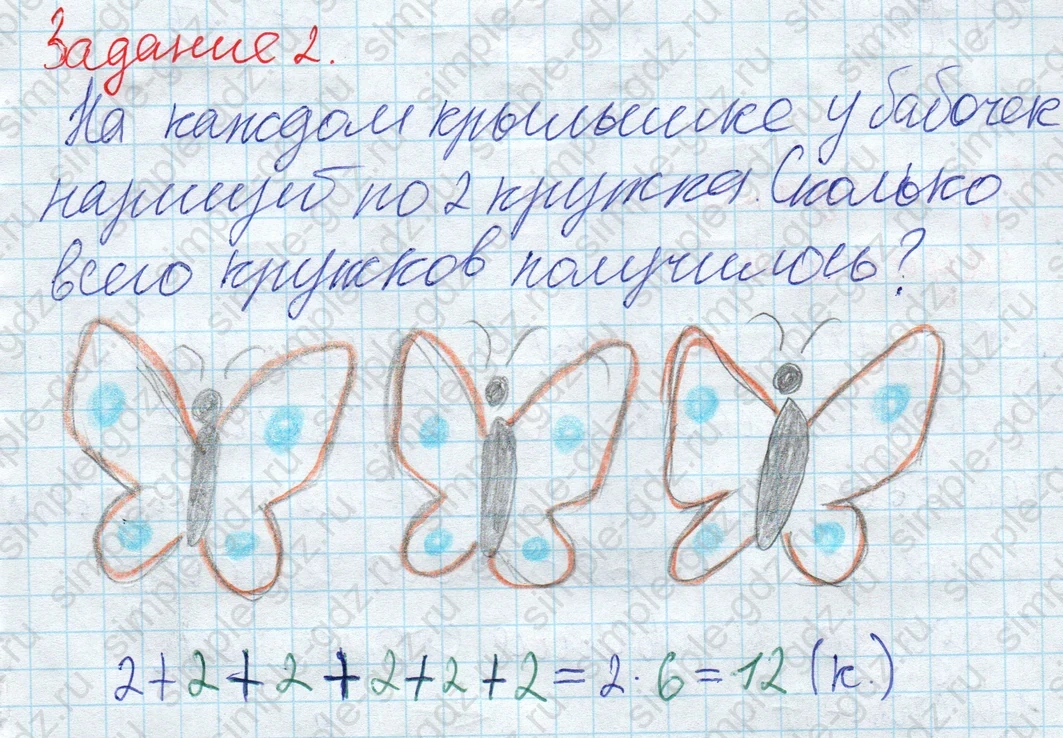 Задание 2.
На каждом крылышке у бабочек
нарисуй по 2 кружка. Сколько
всего кружков получилось?
2+2+2+2+2+2=2·6=12 (к.)
simple-gdz.ru